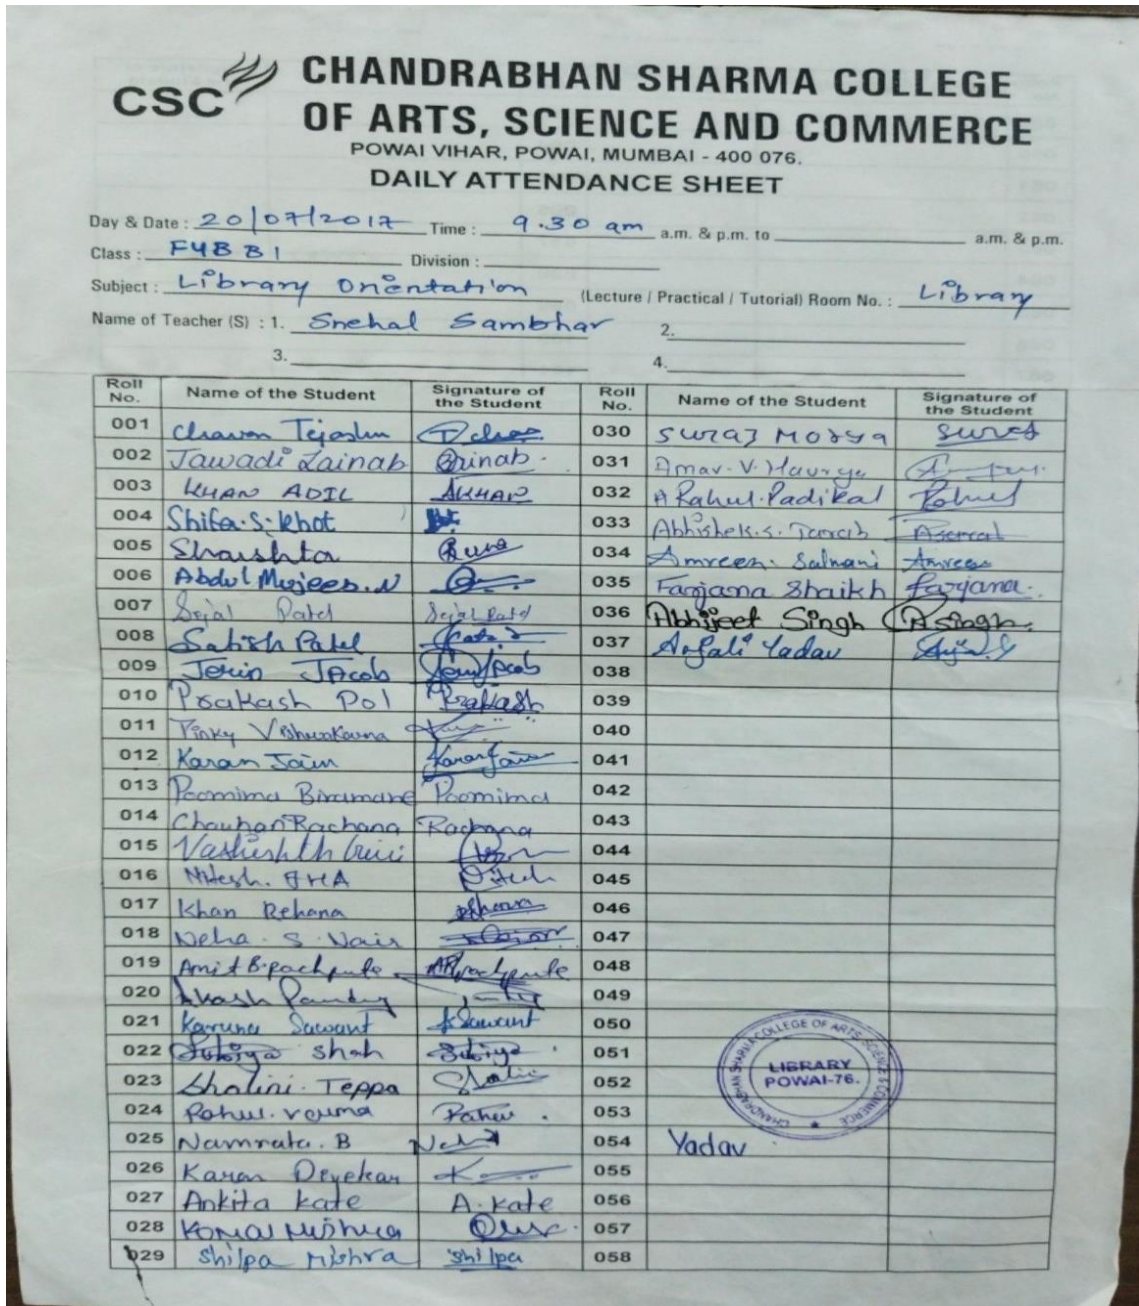 CSC
CHANDRABHAN SHARMA COLLEGE
OF ARTS, SCIENCE AND COMMERCE
POWAI VIHAR, POWAI, MUMBAI - 400 076.
DAILY ATTENDANCE SHEET
Day & Date : 20/07/2017 Time : 9.30 am a.m. & p.m. to a.m. & p.m.
Class : FYBBI Division :
Subject : Library Orientation (Lecture / Practical / Tutorial) Room No. : Library
Name of Teacher (S) : 1. Snehal Sambhar 2.
3. 4.
Roll No. Name of the Student Signature of the Student Roll No. Name of the Student Signature of the Student
001 Chavan 030 SURAJ MORYA Suraj
002 Jawadi Zainab Zainab 031 Amar. V. Maurya
003 KHAN ADIL AKHAN 032 A Rahul. Padikal Rahul
004 Shifa. S. Khot 033 Abhishek. S.
005 Shaishta 034 Amreen. Salmani Amreen
006 Abdul Mujeeb. N 035 Farjana Shaikh farjana.
007 Sejal Patel Sejal Patel 036 Abhijeet Singh A Singh.
008 Satish Patel 037 Anjali Yadav
009 Jerin Jacob Jacob 038
010 Prakash Pol Prakash 039
011 Pinky Vishwakarma 040
012 Karan Jain Karan Jain 041
013 Poornima Biramane Poornima 042
014 Chauhan Rachana Rachana 043
015 044
016 Nitesh. JHA Nitesh 045
017 Khan Rehana 046
018 Neha. S. Nair 047
019 Amit B. pachpute pachpute 048
020 Akash Pandey 049
021 Karuna Sawant Sawant 050
022 Shah 051
023 Shalini. Teppa 052
024 Rahul. Verma Rahul 053
025 Namrata. B 054 Yadav
026 Karan 055
027 Ankita Kate A. Kate 056
028 Komal Mishra 057
029 Shilpa Mishra Shilpa 058
CHANDRABHAN SHARMA COLLEGE OF ARTS, SCIENCE & COMMERCE
LIBRARY
POWAI-76.